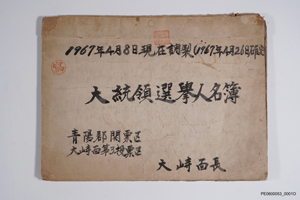 1967年4月8日現在調製(1967年4月26日確定
大統領選擧人名簿
青陽郡開票區
大峙面第3投票區
大峙面長